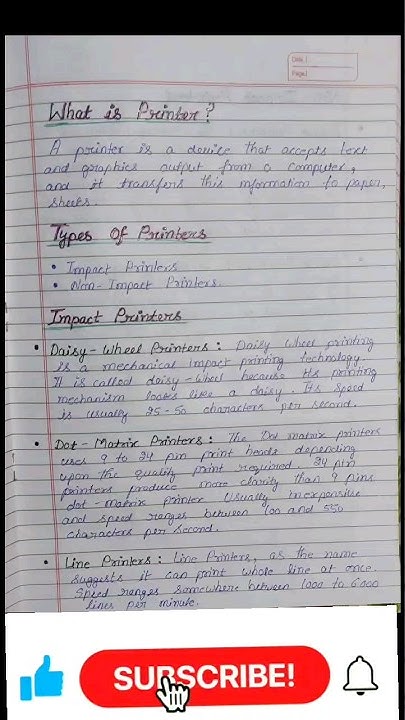 Date
Page
What is Printer?
A printer is a device that accepts text
and graphics output from a computer,
and it transfers this information to paper,
sheets.
Types Of Printers
• Impact Printers
• Non-Impact Printers.
Impact Printers
• Daisy-Wheel Printers: Daisy wheel printing
is a mechanical impact printing technology.
It is called daisy-wheel because its printing
mechanism looks like a daisy. Its speed
is usually 25-50 characters per second.
• Dot-Matrix Printers: The Dot matrix printers
uses 9 to 24 pin print heads depending
upon the quality print required. 24 pin
printers produce more clarity than 9 pins
dot-matrix printer usually inexpensive
and speed ranges between 100 and 550
characters per second.
• Line Printers: Line Printers, as the name
suggests it can print whole line at once.
Speed ranges somewhere between 1000 to 6000
lines per minute.
SUBSCRIBE!